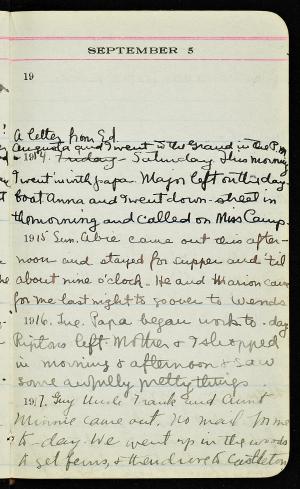 SEPTEMBER 5
19
A letter from Ed.
Augusta and I went to the Grand in the P.M.
1914. Friday - Saturday. This morning
I went with papa. Major left on the day
boat Anna and I went down-street in
the morning and called on Miss Camp.
1915 Sun. Abie came out this after-
noon and stayed for supper and 'til
about nine o'clock. He and Marion came
for me last night to go over to Wends
1916. Tue. Papa began work to-day.
Riptons left. Mother & I shopped
in morning & afternoon & saw
some awfully pretty things
1917. Guy Uncle Frank and Aunt
Minnie came out. No mail for me
to-day. We went up in the woods
to get ferns, & then drove to Castleton